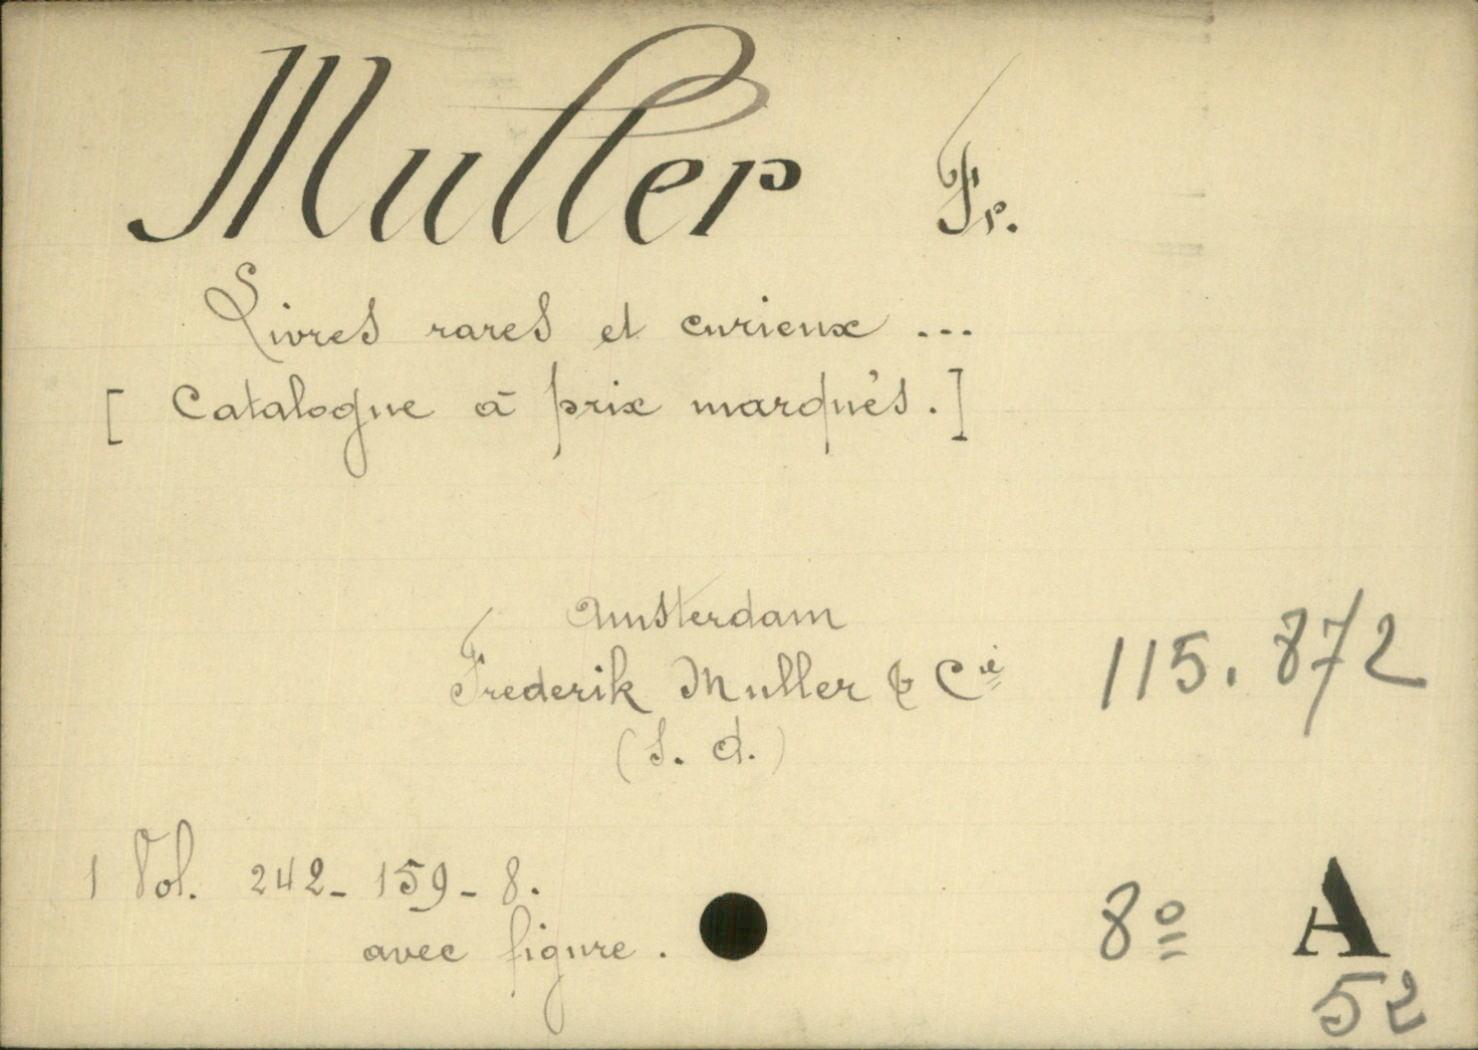 Muller Fr.
Livres rares et curieux ...
[ Catalogue à prix marqués. ]
Amsterdam
Frederik Muller & Cie
(s. d.)
115.872
1 Vol. 242_ 159_ 8.
avec figure.
8º A
52